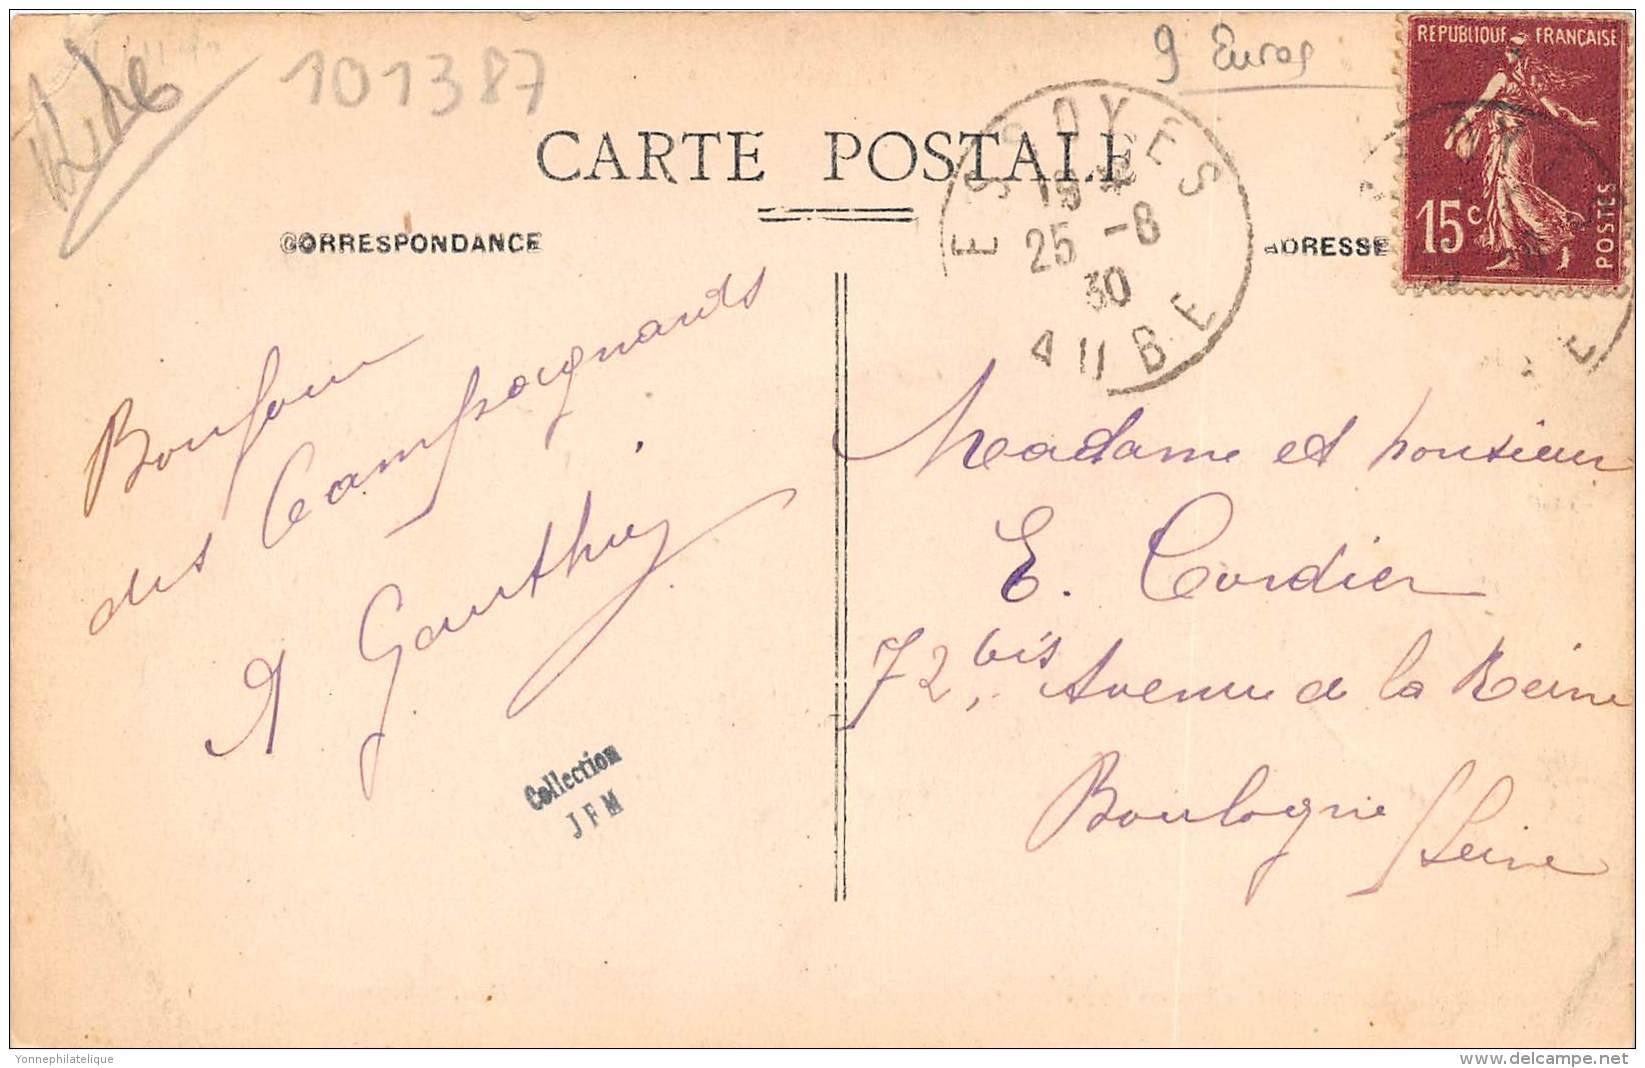 101387
9 Euros
REPUBLIQUE FRANÇAISE
15c
POSTES
CARTE POSTALE
ESSOYES
19
25 -8
30
AUBE
CORRESPONDANCE
ADRESSE
Bonjour
des Campagnards
A Gauthier
Collection
JFM
Madame et Monsieur
E. Cordier
72 bis, Avenue de la Reine
Boulogne
/Seine
Yonnephilatelique
delcampe.net